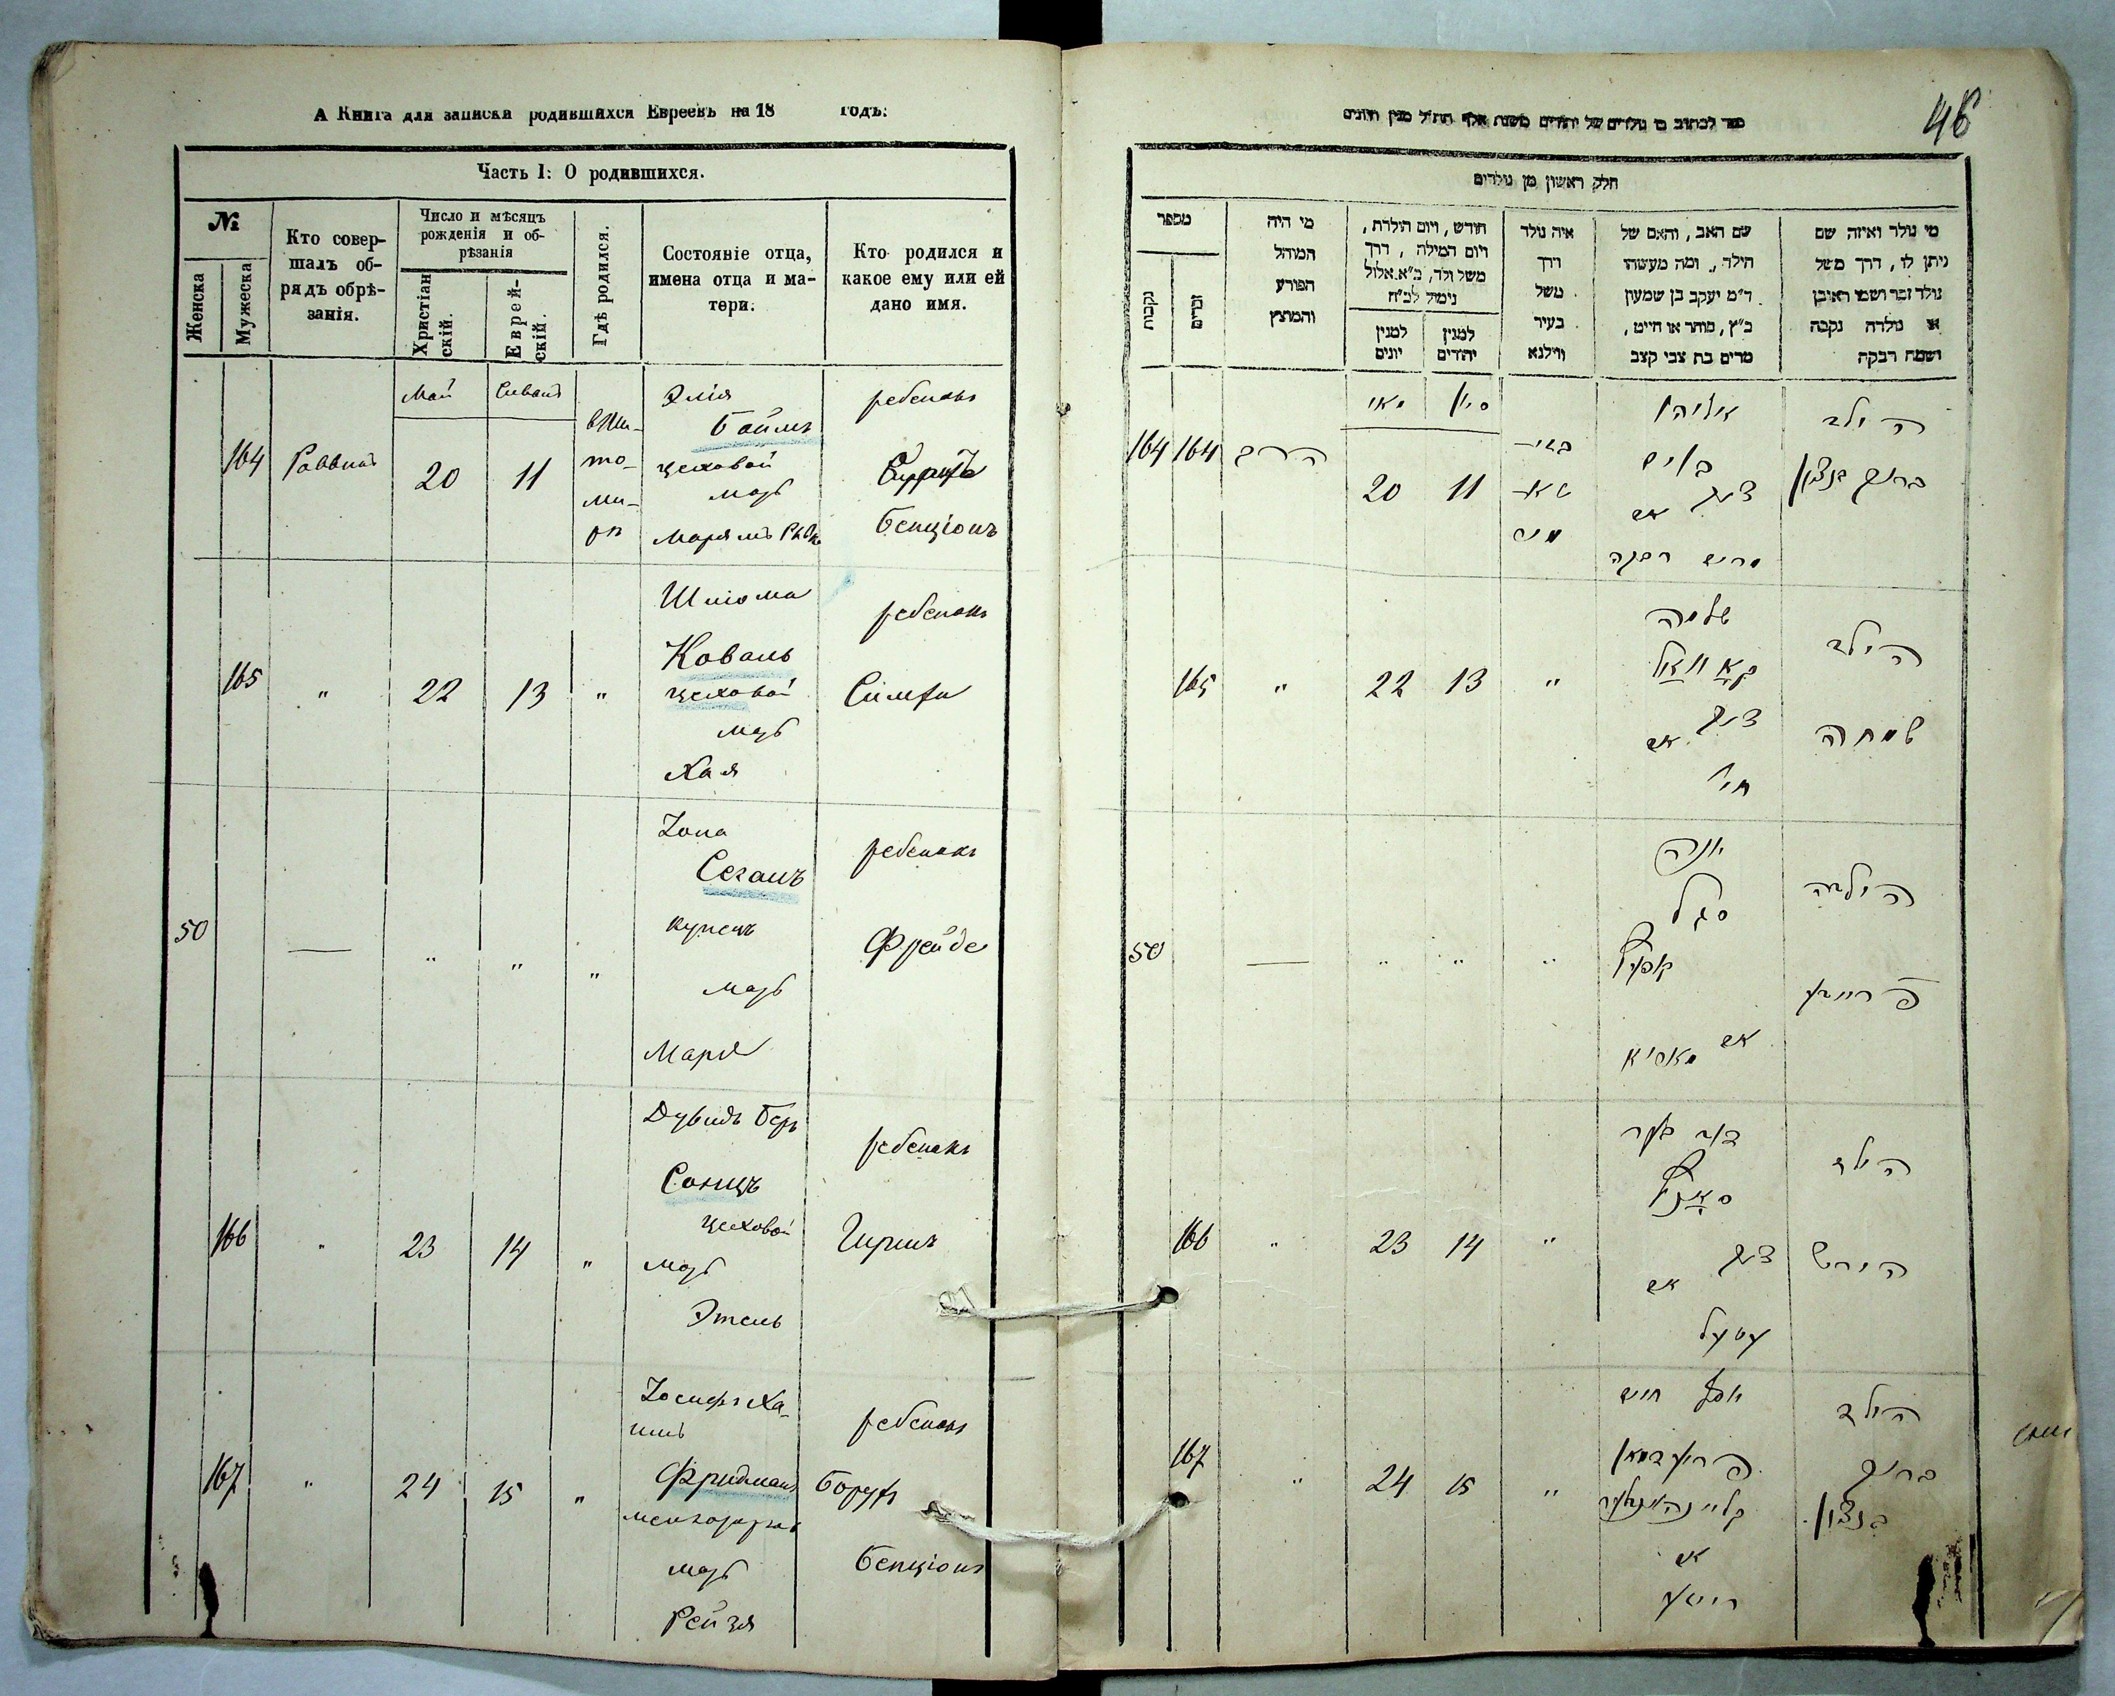 А Книга для записки родившихся Евреевъ на 18 годъ.
Часть I: О родившихся.
№
Женска
Мужеска
Кто совер-
шалъ об-
рядъ обрѣ-
занія.
Число и мѣсяцъ
рожденія и об-
рѣзанія
Христіан
скій.
Еврей-
скій.
Гдѣ родился.
Состояніе отца,
имена отца и ма-
тери.
Кто родился и
какое ему или ей
дано имя.
Май
Сиванъ
164
Раввинъ
20
11
въ Жи-
то-
ми-
рѣ
Элія
Боймъ
цеховой
мать
ребенокъ
Бенціонъ
165
"
22
13
"
Шлома
Коваль
цеховой
мать
Хая
ребенокъ
Симха
50
—
"
"
"
Іона
Сегалъ
купецъ
мать
Мария
ребенокъ
Фрейде
166
"
23
14
"
Дувидъ Беръ
Сонцъ
цеховой
мать
Этель
ребенокъ
Гиршъ
167
"
24
15
"
Іосифъ Ха-
имъ
Фридманъ
мать
Рейзя
ребенокъ
Борухъ
Бенціонъ
46
חלק ראשון מן נולדים
מספר
נקבות
זכרים
מי היה
המוהל
הפורע
והמוצץ
חודש, ויום הולדת,
ויום המילה, דרך
משל ולד, ב"א אלול
נימול לב"ח
למנין
יונים
למנין
יהודים
איה נולד
דרך
משל
בעיר
ווילנא
שם האב, והאם של
הילד, ומה מעשהו
ד"מ יעקב בן שמעון
כ"ץ, סוחר או חייט,
מרים בת צבי קצב
מי נולד ואיזה שם
ניתן לו, דרך משל
נולד זכר ושמו ראובן
או נולדה נקבה
ושמה רבקה
מאי
סיון
164
164
הרב
20
11
אליהו
בוים
צעך
אם
מרים רבקה
הילד
ברוך בנציון
165
"
22
13
"
שלמה
קאוואל
צעך
אם
חי'
הילד
שמחה
50
—
"
"
"
יונה
סגל
קופץ
אם מאריא
הילדה
פריידע
166
"
23
14
"
דוב בער
סאנץ
צעך
אם
עטעל
הילד
הירש
167
"
24
15
"
יוסף חיים
פרידמאן
אם
רייזע
הילד
ברוך
בנציון